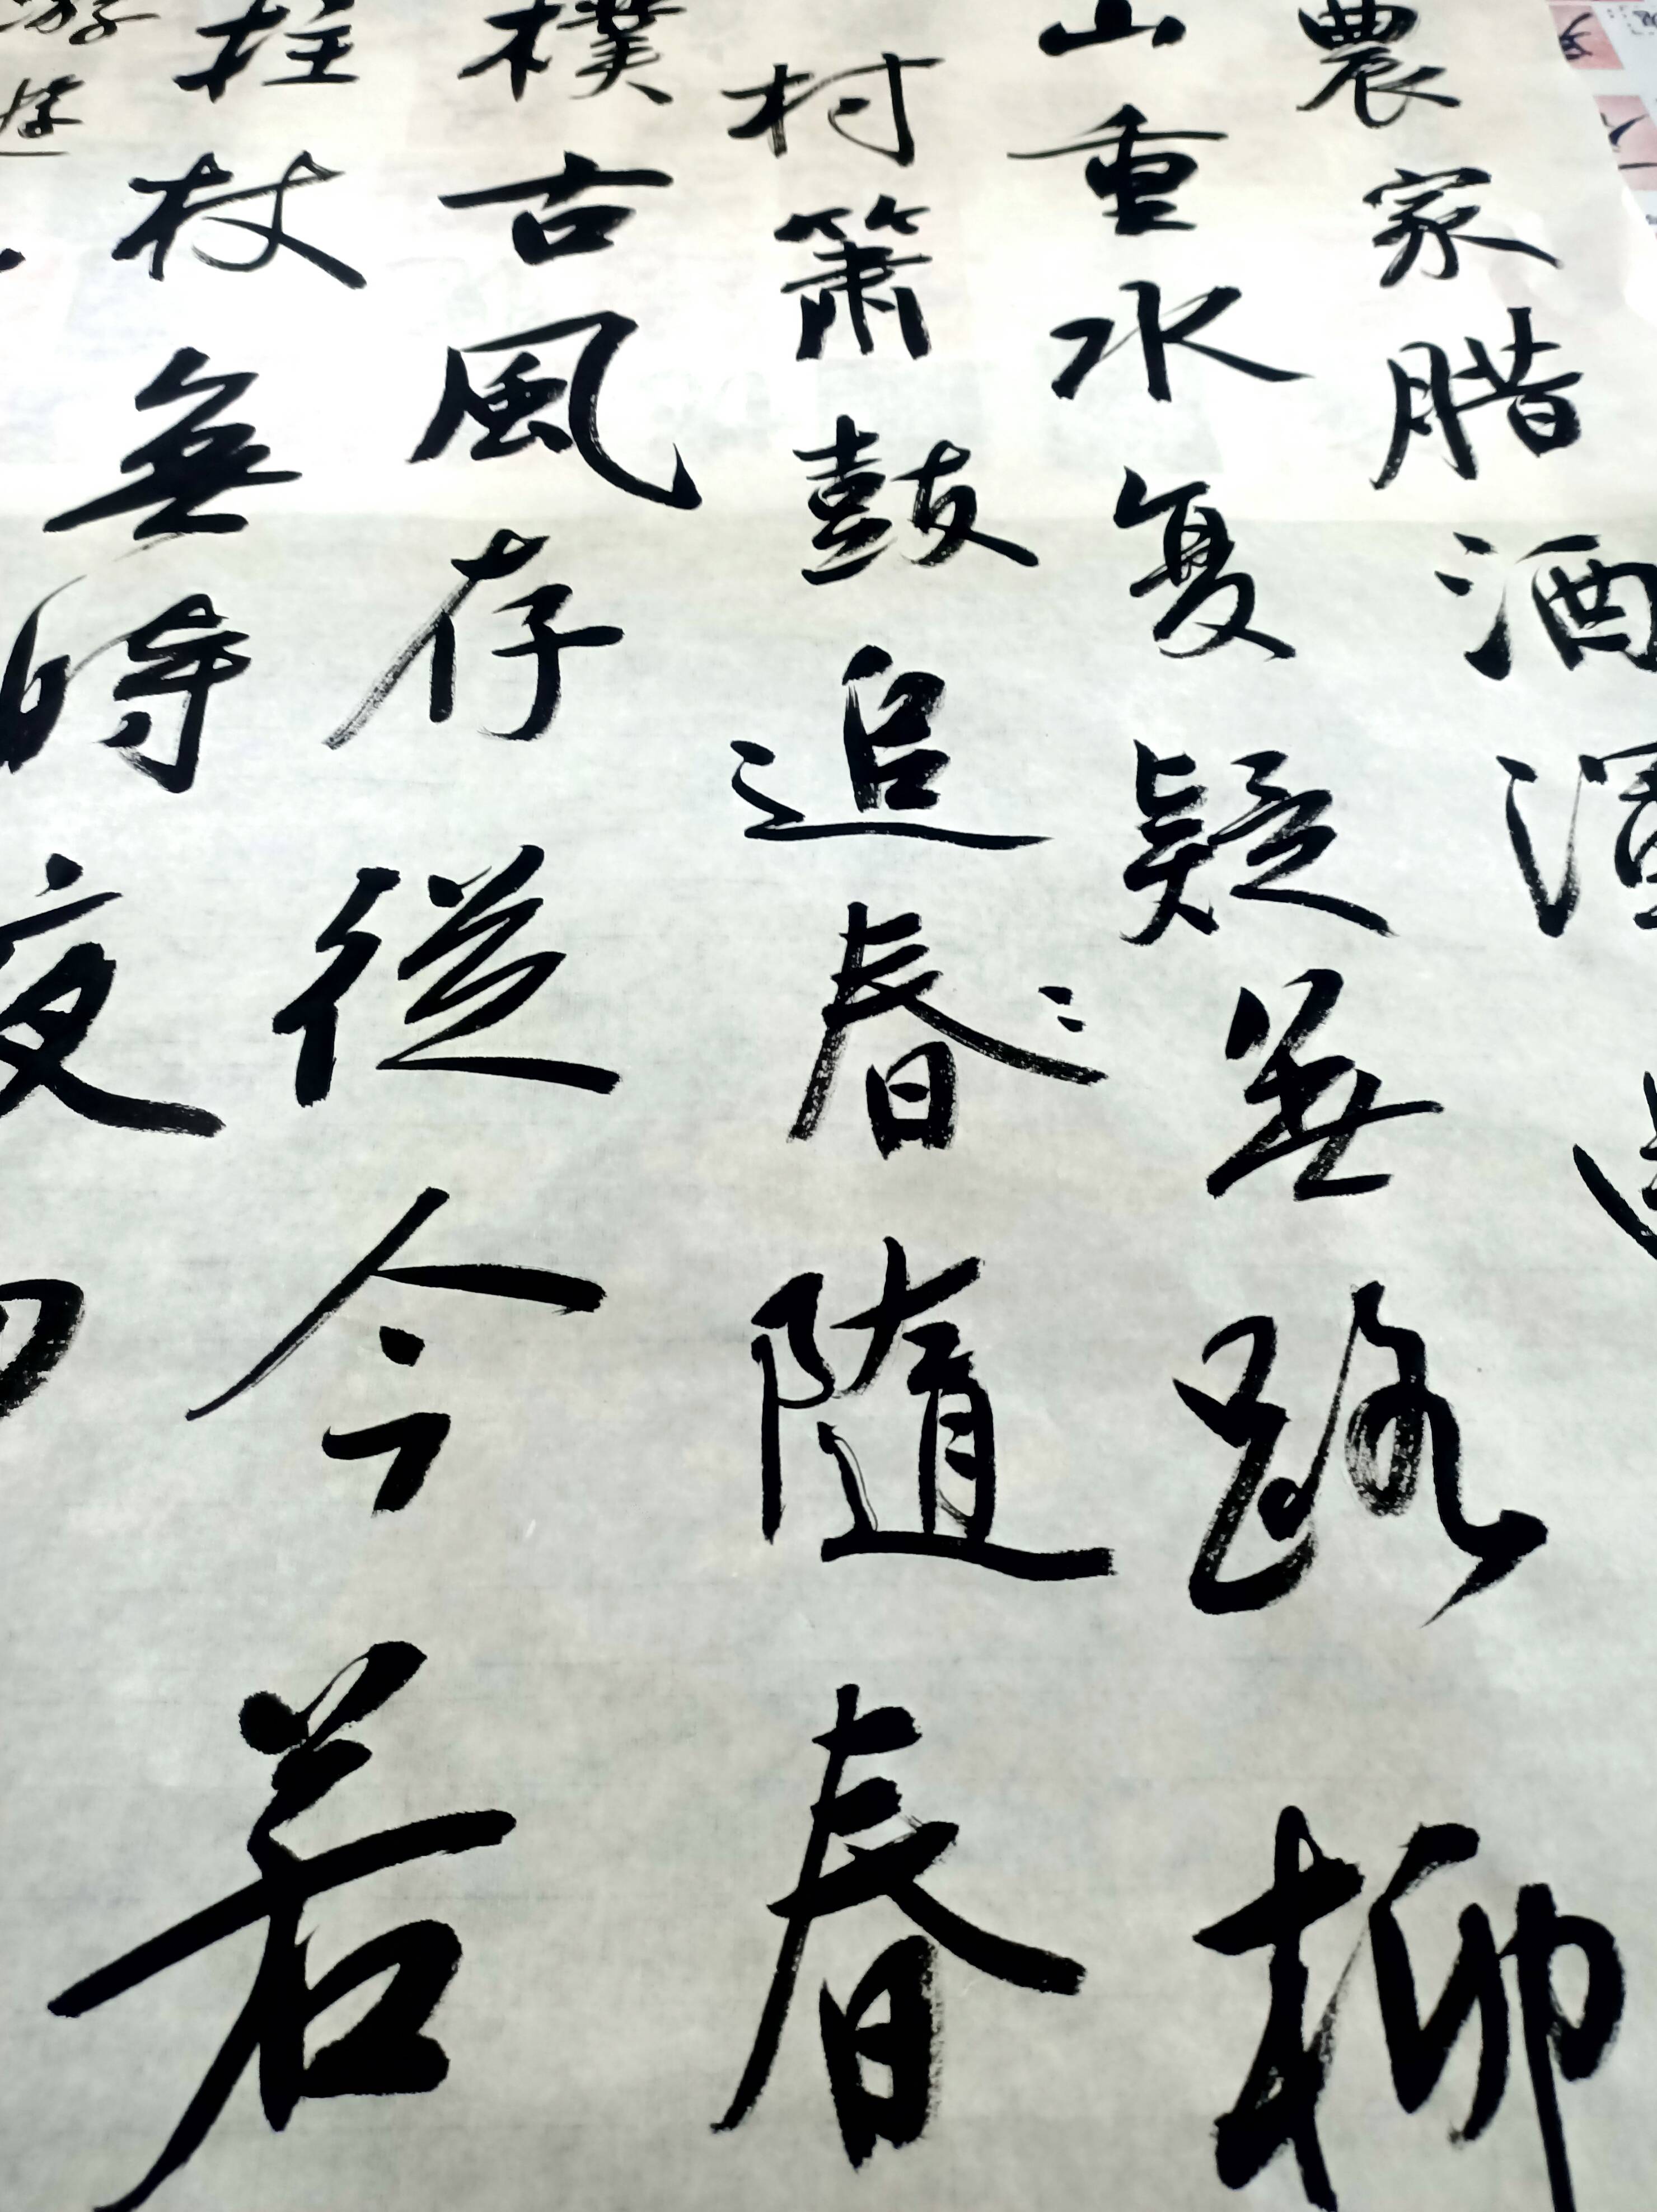 農家腊酒渾
山重水复疑無路柳
村簫鼓追春隨春
樸古風存從今若
拄杖無時夜
游